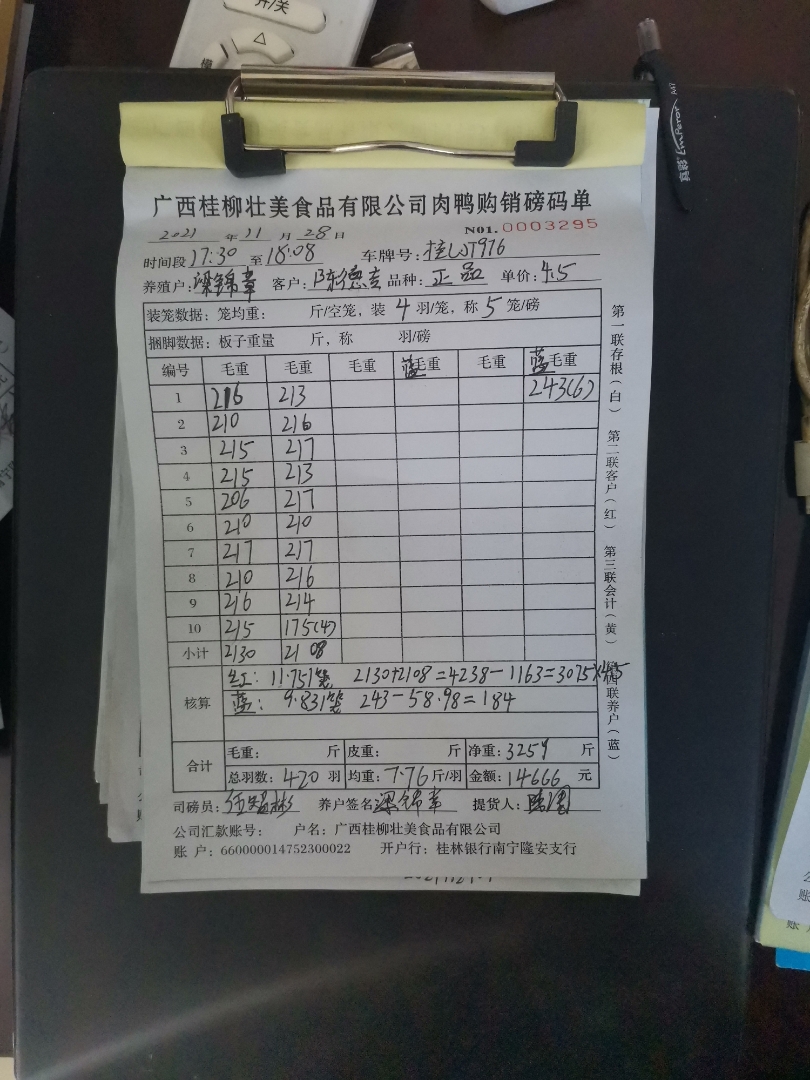 开/关
广西桂柳壮美食品有限公司肉鸭购销磅码单
2021 年 11 月 28 日 N01.0003295
时间段 17:30 至 18:08 车牌号:
养殖户:梁锦章 客户:陈德 品种:正品 单价:4.5
装笼数据:笼均重: 斤/空笼,装 4 羽/笼,称 5 笼/磅
捆脚数据:板子重量 斤,称 羽/磅
编号 毛重 毛重 毛重 蓝毛重 毛重 蓝毛重
1 216 213 243(6)
2 210 216
3 215 217
4 215 213
5 206 217
6 210 210
7 217 217
8 210 216
9 216 214
10 215 175(4)
小计 2130 2108
核算
红:11.751笼 2130+2108=4238-1163=3075×4.5
蓝:9.831笼 243-58.98=184
合计
毛重: 斤 皮重: 斤 净重:3259 斤
总羽数:420 羽 均重:7.76斤/羽 金额:14666 元
司磅员: 养户签名 梁锦章 提货人:
公司汇款账号: 户名:广西桂柳壮美食品有限公司
账 户:660000014752300022 开户行:桂林银行南宁隆安支行
第一联存根(白) 第二联客户(红) 第三联会计(黄) 第四联养户(蓝)